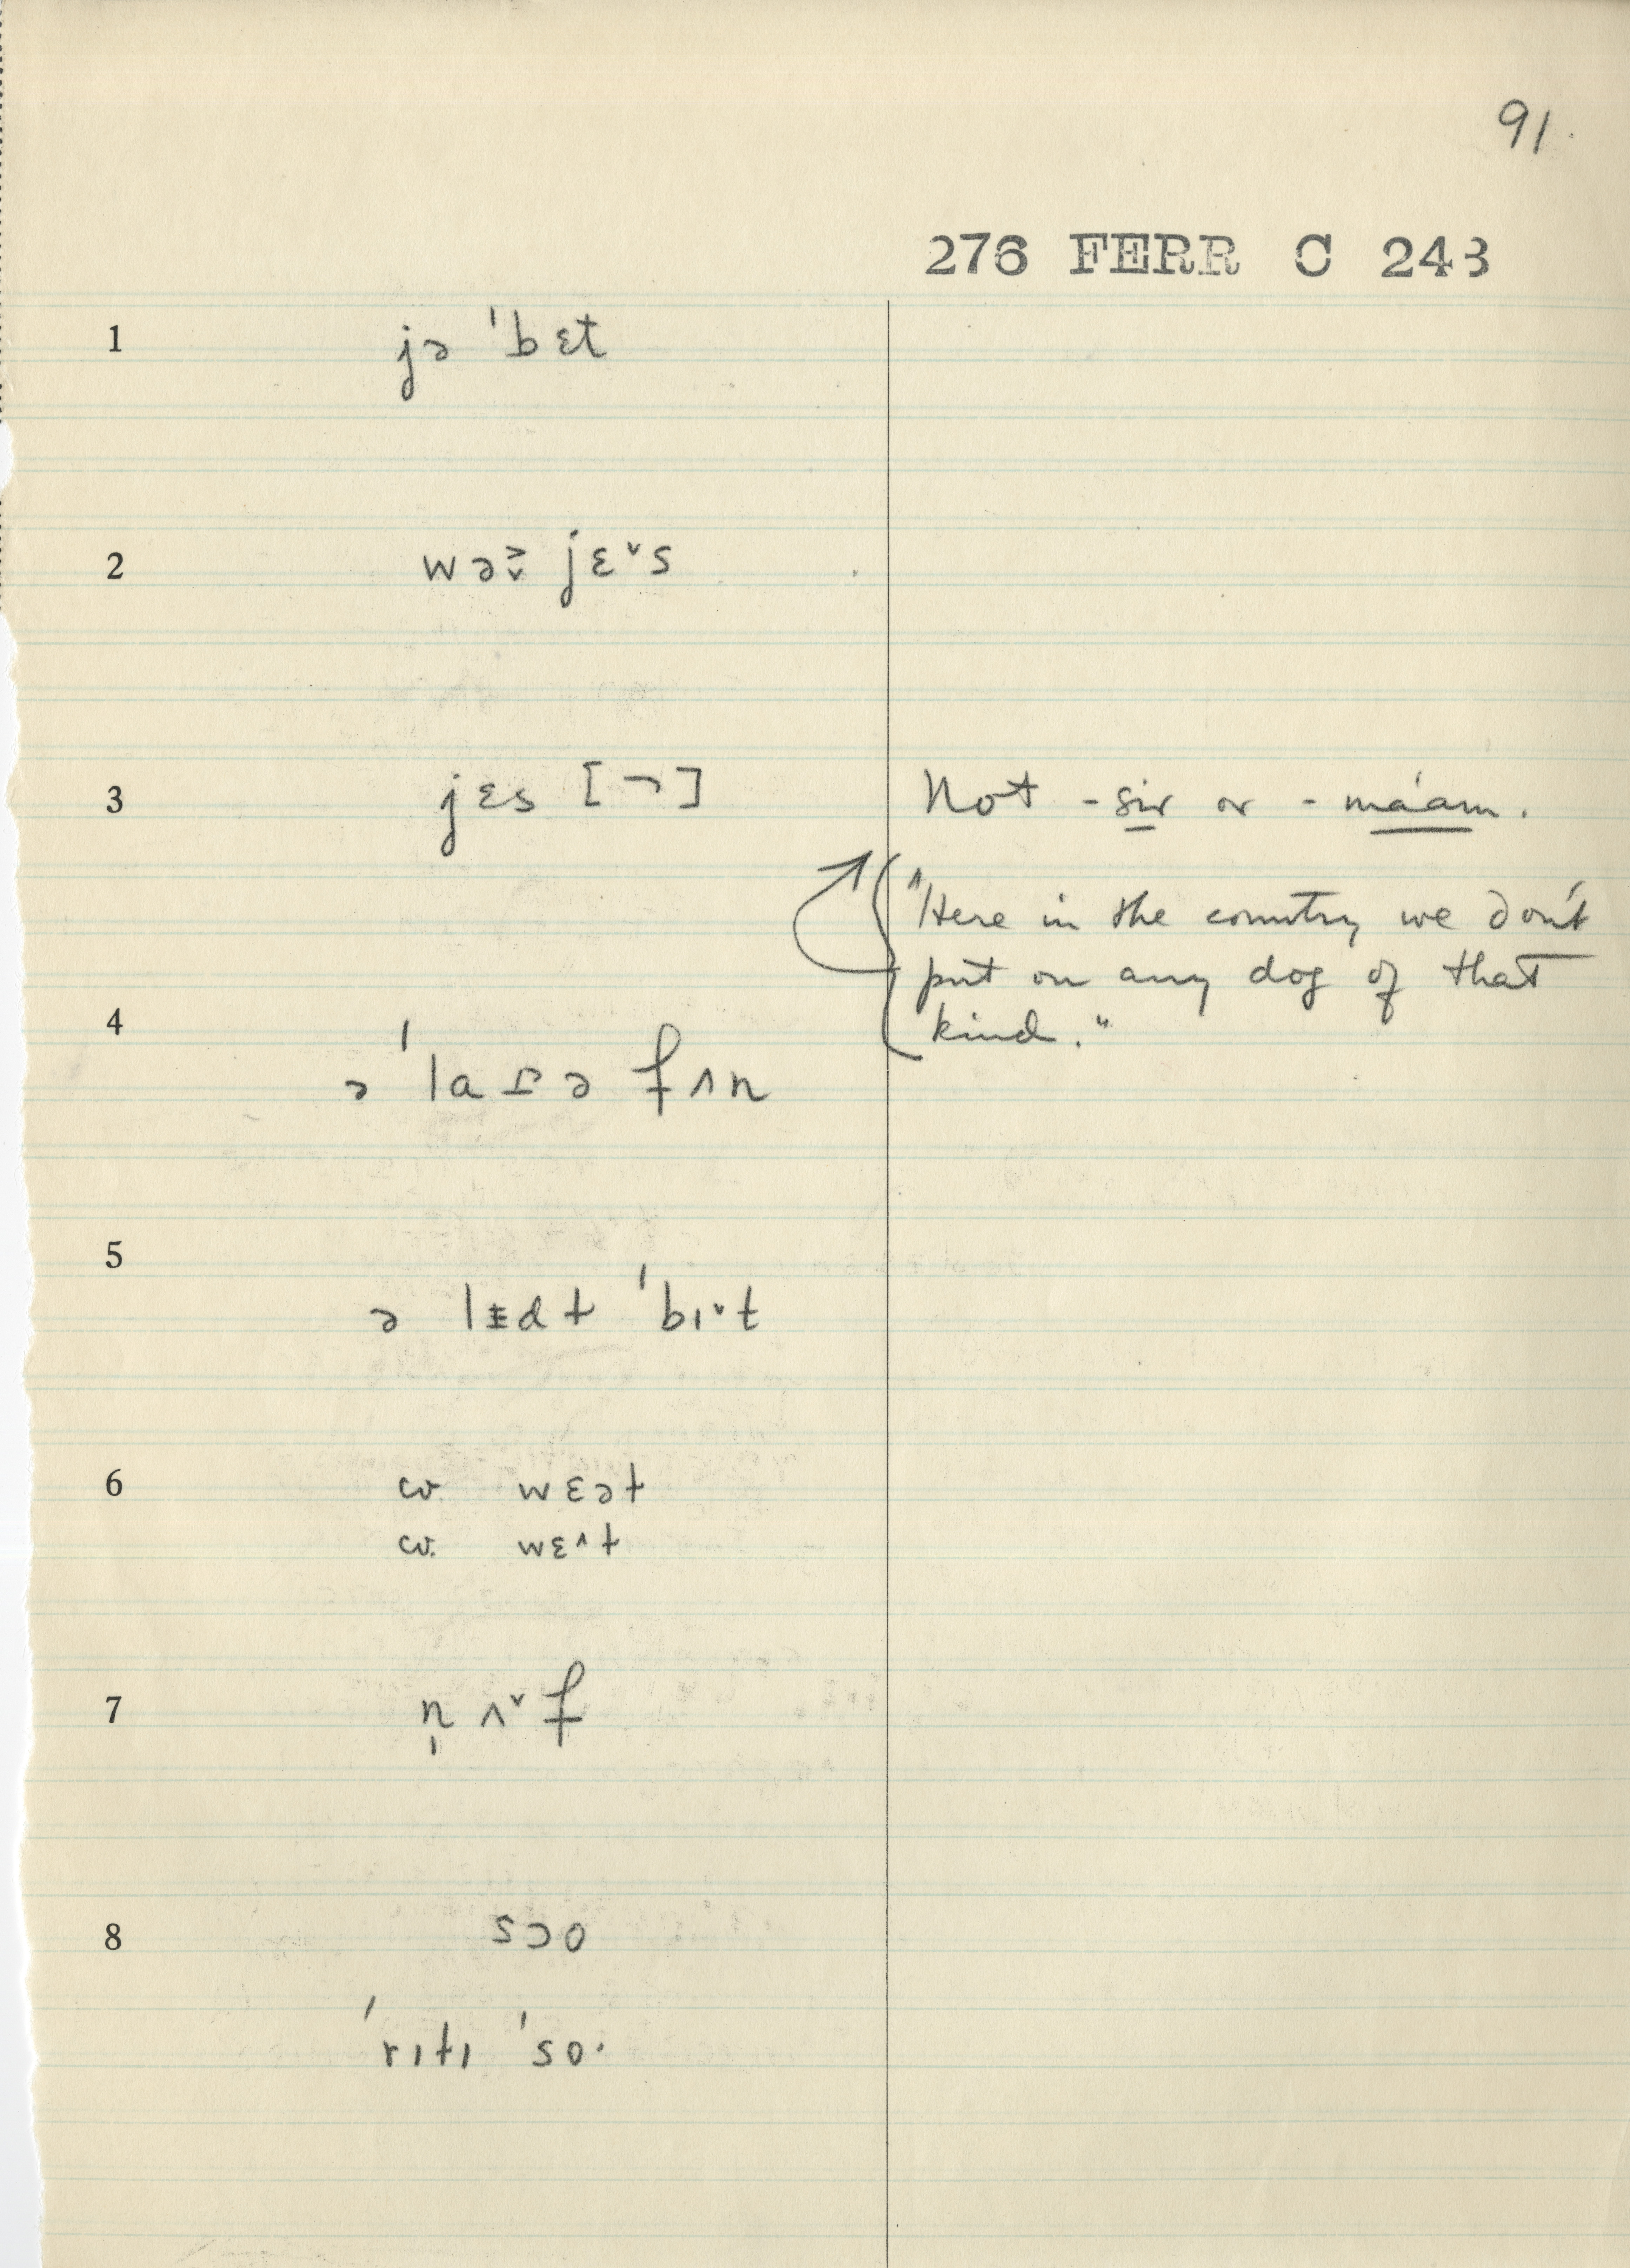 91.
276 FERR C 243
1 jə ˈbɛt
2 wə jɛ˅s
3 jɛs [¬] Not - sir or - ma'am.
"Here in the country we don't
put on any dog of that
kind."
4
ə fʌn
5
ə ˈbɪ˅t
6 wɛət
wɛ^t
7 n̩ ʌ˅f
8 sɔo
ˈrɪtɪ ˈso·